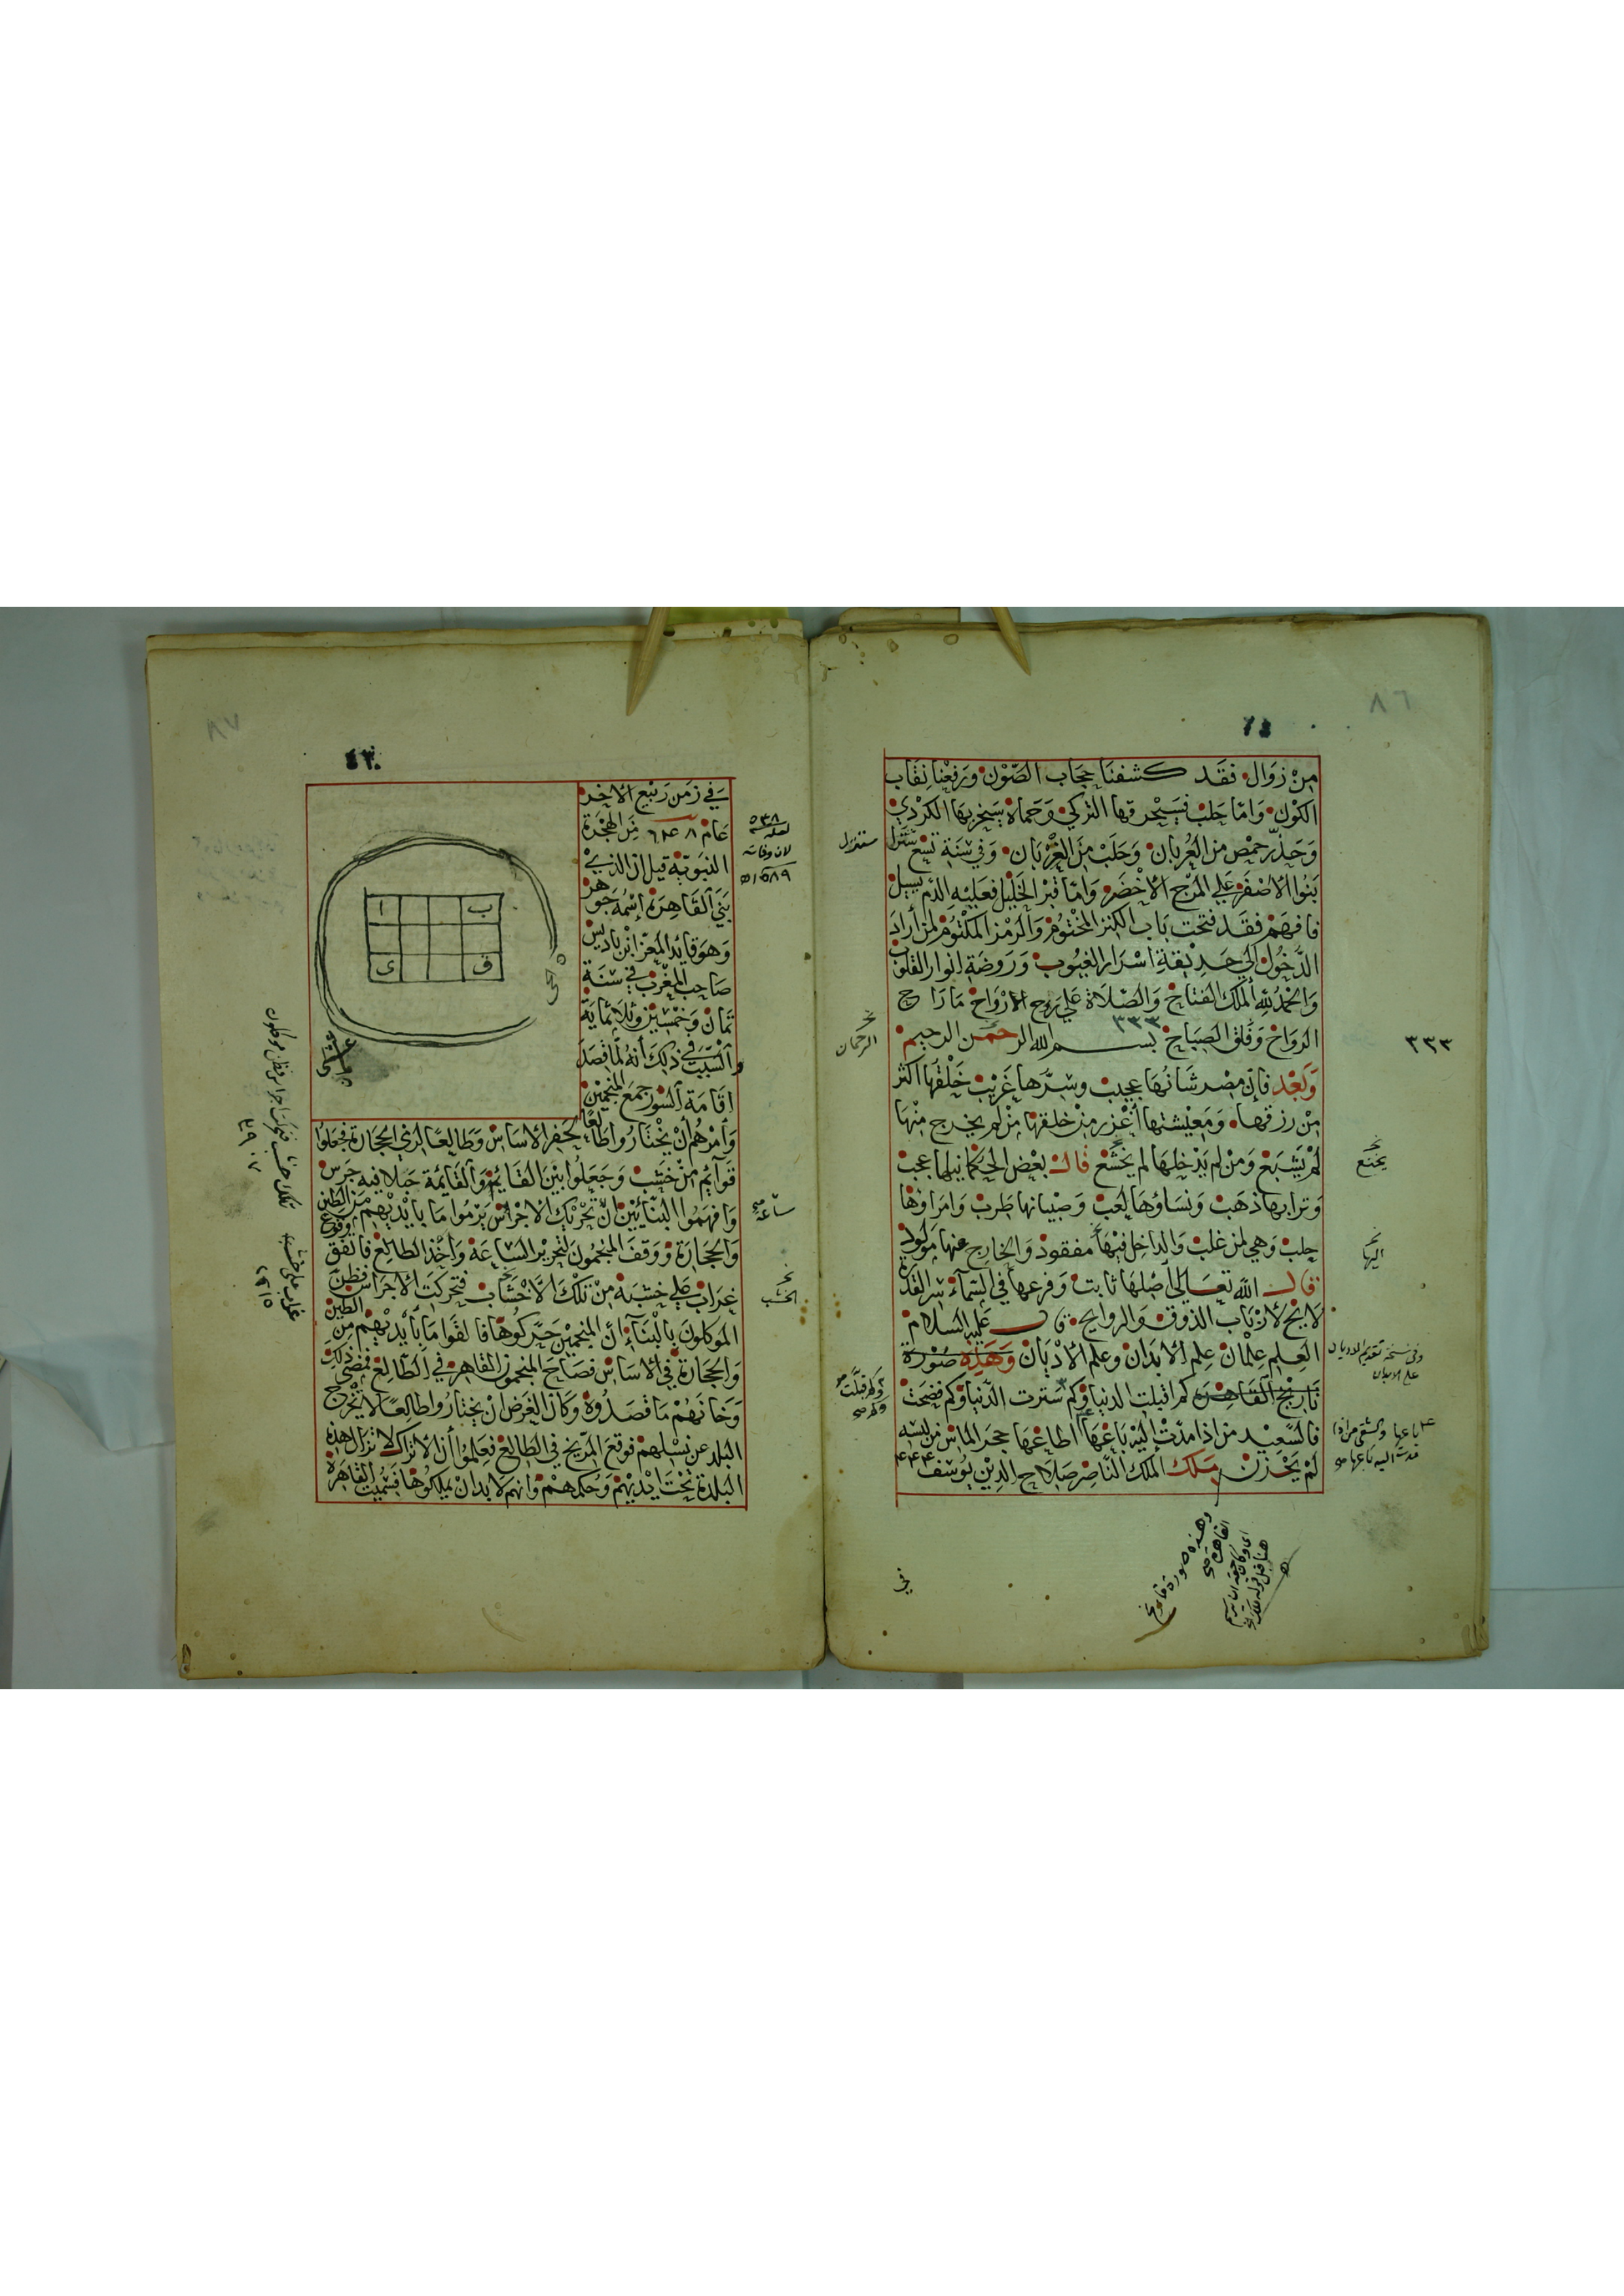 ٨٦
من زوال فقد كشفنا حجاب الصون ورفعنا نقاب
الكون واما حلب فسيحرقها التركي وحماة يستخربها الكردي
وحذر حمص من العربان وحلب من العربان وفي سنة تسع ستنزل
ستنزل
بنوا الاصفر علي المرج الاخضر واما قبر الخليل فعليه الدم يسيل
فافهم فقد فتحت باب الكنز المختوم والرمز المكتوم لمن أراد
الدخول الي حديقة اسرار الغيوب وروضة انوار القلوب
والحمد لله الملك الفتاح والصلاة علي روح الارواح ما راح
الرواح وفلق الصباح بسم الله الرحمن الرحيم
الرحمان
٣٣٣
وبعد فان مصر شانها عجيب وسرها غريب خلقها اكثر
من رزقها ومعيشتها أغزر من خلقها من لم يخرج منها
لم يشبع ومن لم يدخلها لم يخشع قال بعض الحكما نيلها عجب
يخنع
وترابها ذهب ونساؤها لعب وصبيانها طرب وامراؤها
جلب وهي لمن غلب والداخل فيها مفقود والخارج عنها مولود
اليها
قال الله تعالي أصلها ثابت وفرعها في السماء سر القدرة
لايح لارباب الذوق والروايح قال عليه السلام
العلم علمان علم الابدان وعلم الاديان وهذه صورة
وفي نسخة تقديم الاديان
على الابدان
تاريخ القاهرة كم اقبلت الدنيا وكم سترت الدنيا وكم فضحت
فالسعيد من اذا مدت اليه باعها اطاعها حجر الماس من لبسه
باعها والشقي من اذا
مدت اليه باعها
لم يحزن ملك الملك الناصر صلاح الدين يوسف
وهذه صورة
القاهرة
في
٨٧
٤٣
في زمن ربيع الاخر
عام من الهجرة
٥٣٨
لعله
لان وفاته
٥٨٩
النبوية قيل ان الذي
بني القاهرة إسمه جوهر
وهو قايد المعز ابن باديس
صاحب المغرب في سنة
ثمان وخمسين وثلاثماية
والسبب في ذلك أنه لما قصد
اقامة السور جمع المنجمين
ا ب
ى ق
وأمرهم أن يختاروا طالعا لحفر الاساس وطالعا لرمي الحجارة فجعلوا
قوائم من خشب وجعلوا بين القائم والقايمة حبلا فيه جرس
وافهموا البنائين ان تحريك الاجراس يرموا ما بايديهم من الطين
والحجارة ووقف المنجمون لتحرير الساعة وأخذ الطالع فاتفق وقوع
ساعة
غراب علي خشبة من تلك الأخشاب فتحركت الاجراس فظن
الخشب
الموكلون بالبناء أن المنجمين حركوها فالقوا ما بأيديهم من الطين
والحجارة في الاساس فصاح المنجمون القاهر في الطالع فمضى ذلك
وخانهم ما قصدوه وكان الغرض ان يختاروا طالعا لا يخرج
البلد عن نسلهم فوقع المريخ في الطالع فعلموا أن الاتراك لا تزال هذه
البلدة تحت ايديهم وحكمهم وانهم لا بد ان يملكوها فسميت القاهرة